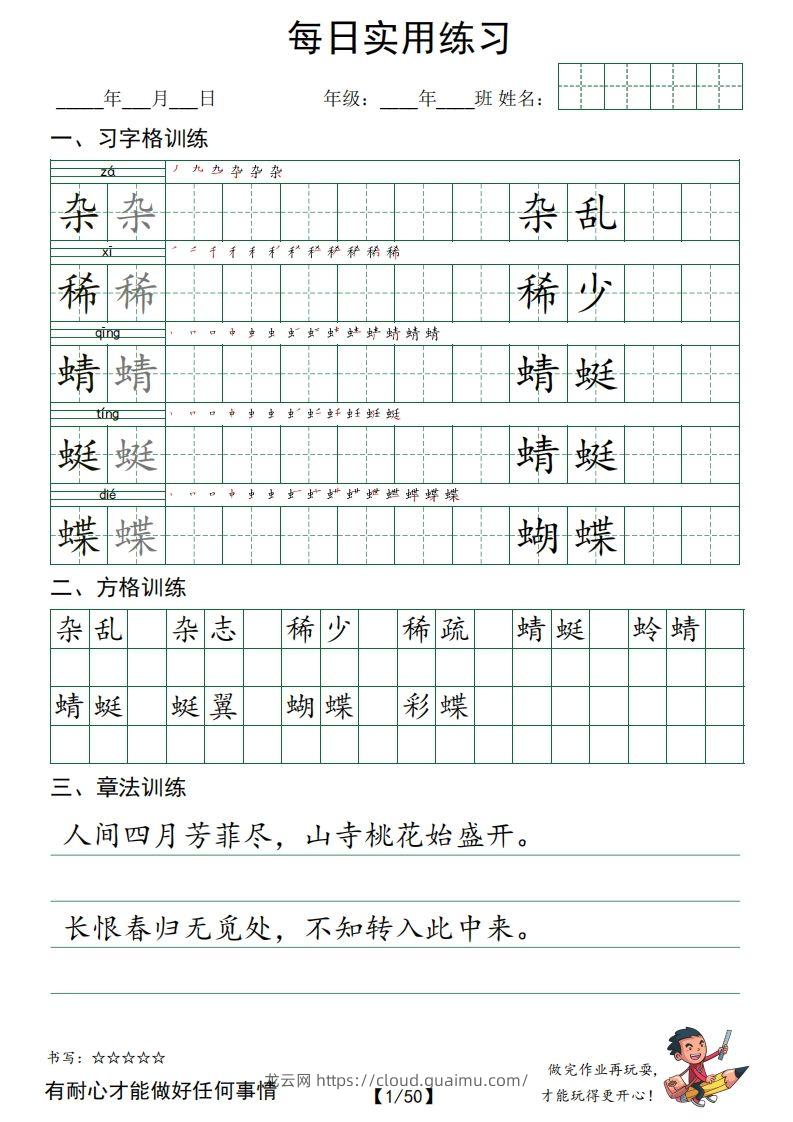 每日实用练习
_____年___月___日 年级：____年____班 姓名：
一、习字格训练
zá
杂 杂 杂 乱
xī
稀 稀 稀 少
qīng
蜻 蜻 蜻 蜓
tíng
蜓 蜓 蜻 蜓
dié
蝶 蝶 蝴 蝶
二、方格训练
杂乱 杂志 稀少 稀疏 蜻蜓 蛉蜻
蜻蜓 蜓翼 蝴蝶 彩蝶
三、章法训练
人间四月芳菲尽，山寺桃花始盛开。
长恨春归无觅处，不知转入此中来。
书写：☆☆☆☆☆
有耐心才能做好任何事情
龙云网 https://cloud.quaimu.com/
【1/50】
做完作业再玩耍，
才能玩得更开心！